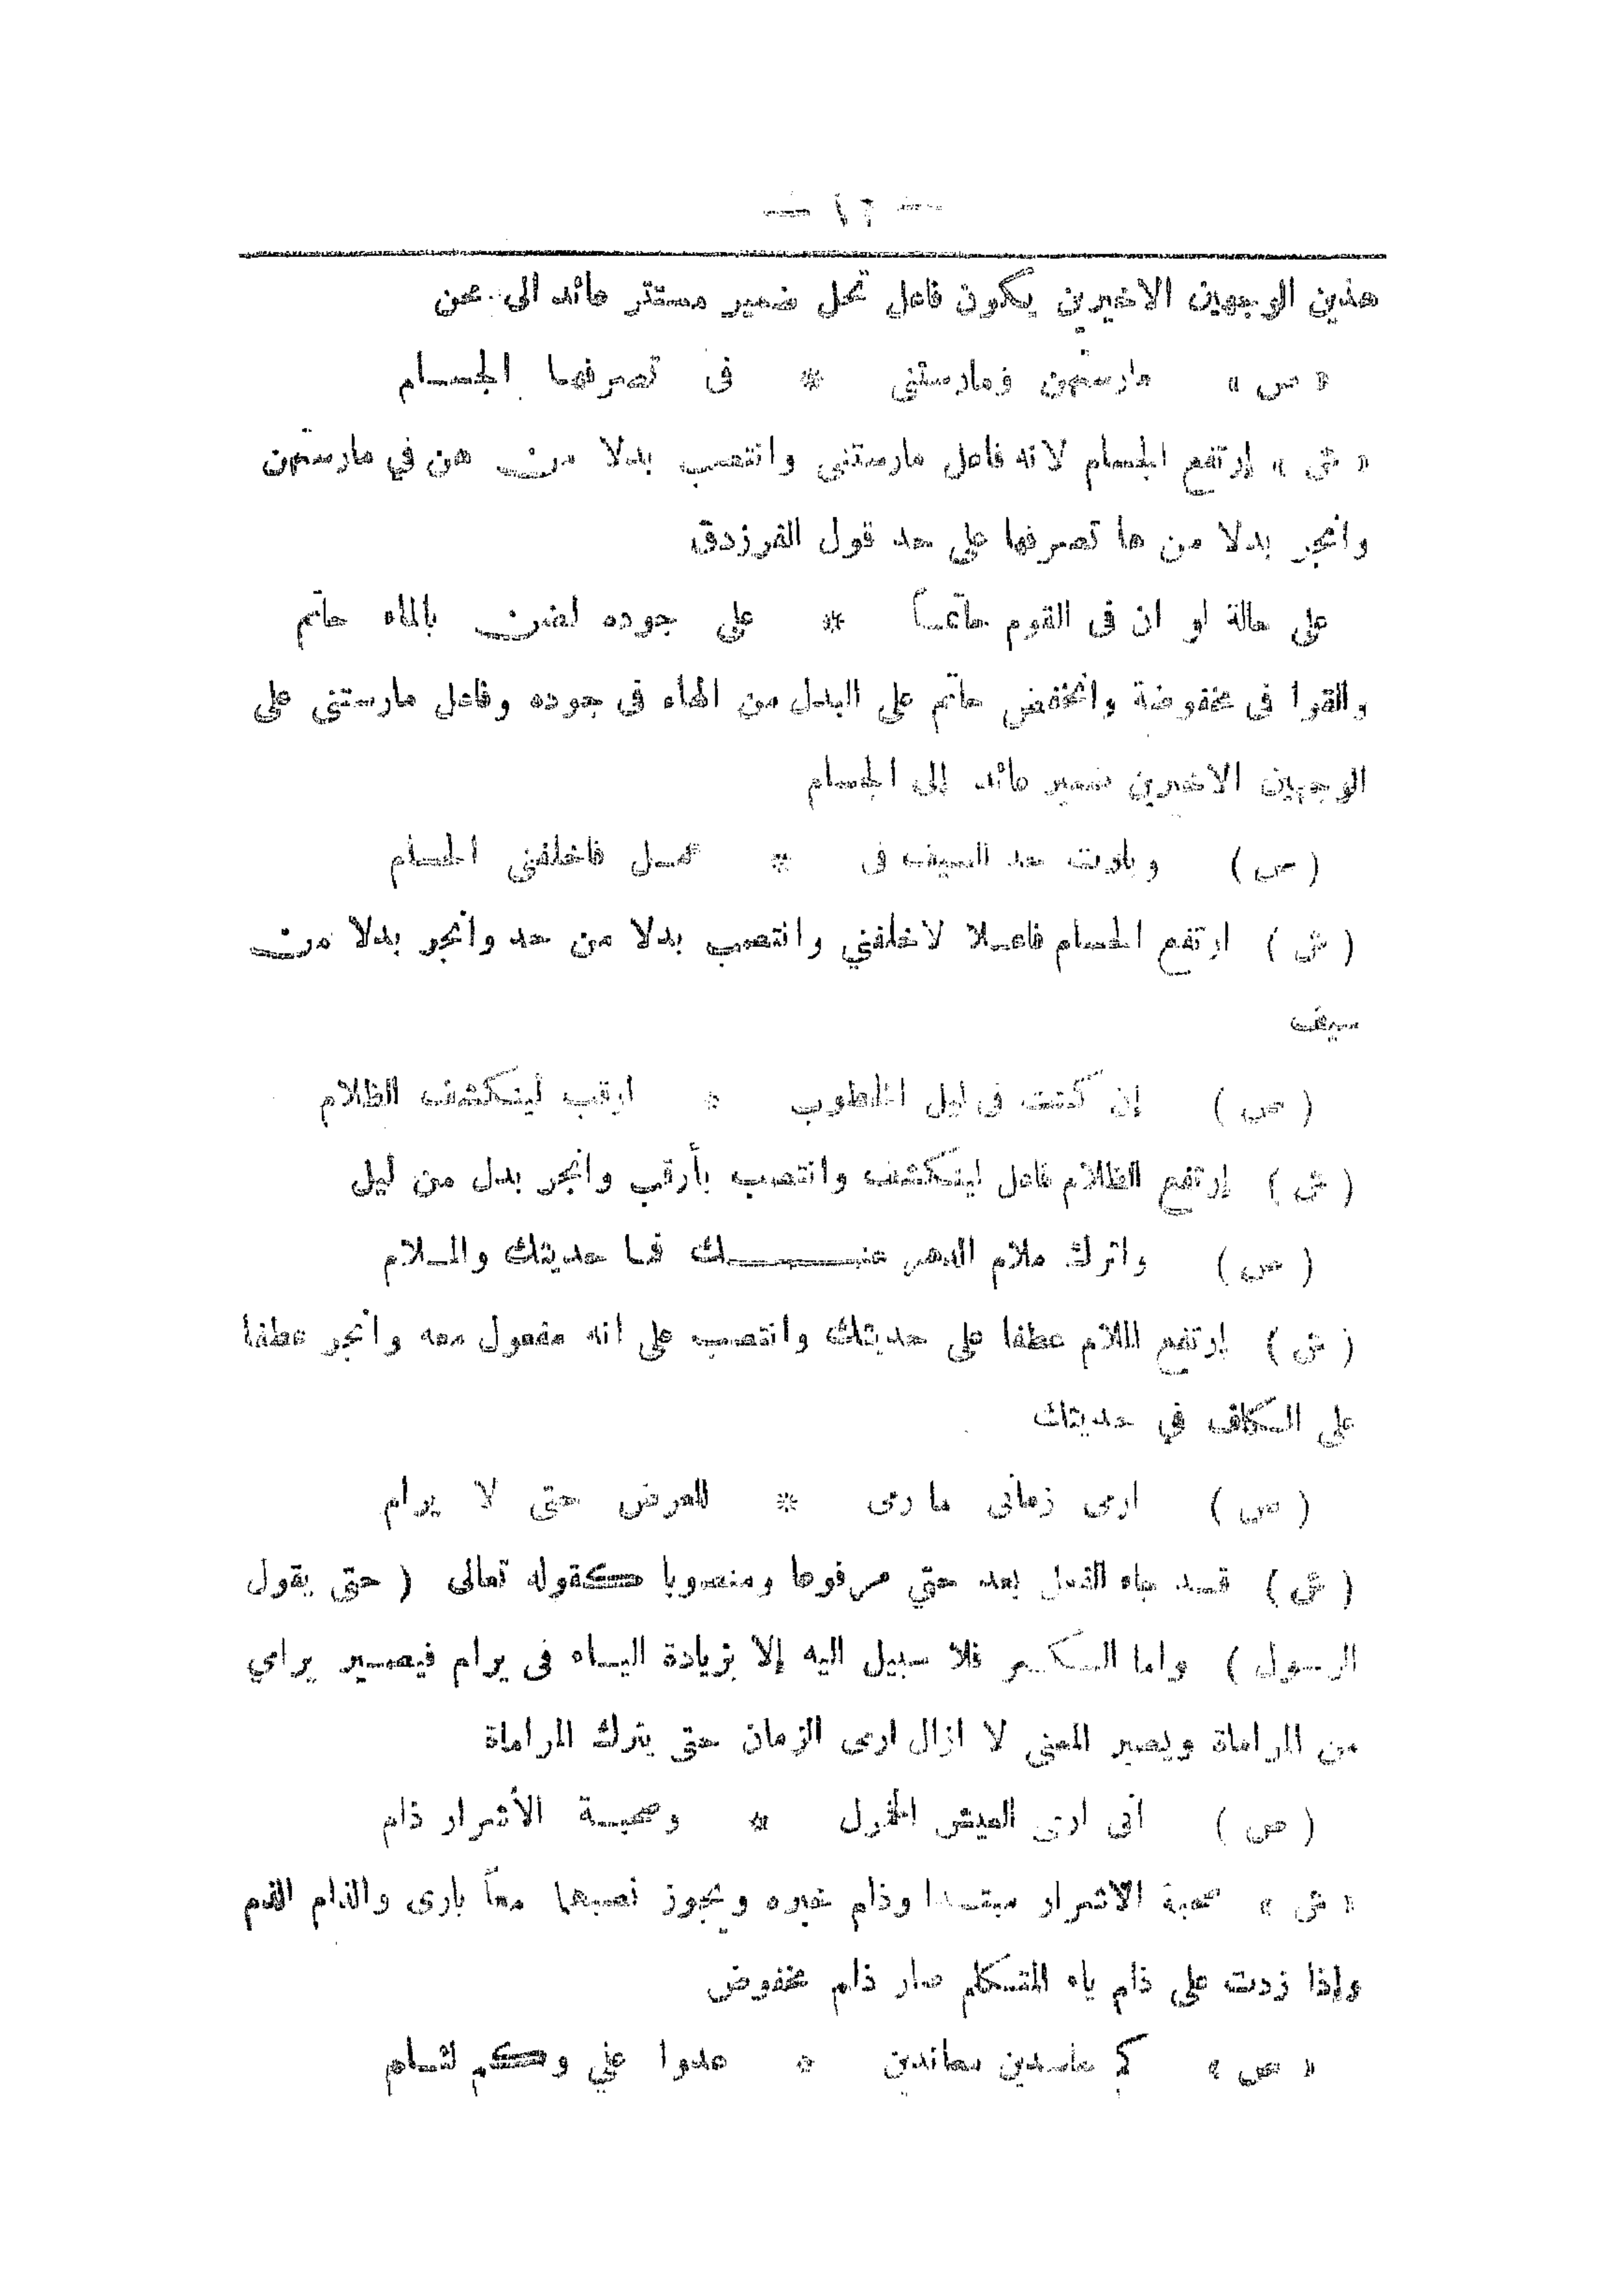 — ١٢ —
هذين الوجهين الاخيرين يكون فاعل تحل ضمير مستتر عائد الى محن
« ص » مارستهن ومارستنى * فى تصرفها الجسام
« ش » إرتفع الجسام لانه فاعل مارستنى وانتصب بدلا من هن في مارستهن
وانجر بدلا من ها تصرفها على حد قول الفرزدق
على حالة لو ان فى القوم حاتماً * على جوده لضن بالماء حاتم
والقوا فى مخفوضة وانخفض حاتم على البدل من الهاء فى جوده وفاعل مارستنى على
الوجهين الاخيرين ضمير عائد إلى الجسام
( ص ) وبلوت حد السيف فى * عمل فاخلفنى الحسام
( ش ) ارتفع الحسام فاعلا لاخلفني وانتصب بدلا من حد وانجر بدلا من
سيف
( ص ) إن كنت فى ليل الخطوب * ارقب لينكشف الظلام
( ش ) إرتفع الظلام فاعل لينكشف وانتصب بأرقب وانجر بدل من ليل
( ص ) واترك ملام الدهر عنك فما حديثك والملام
( ش ) إرتفع الملام عطفا على حديثك وانتصب على انه مفعول معه وانجر عطفا
على الكاف في حديثك
( ص ) ارمى زمانى ما رمى * للعرض حتى لا يرام
( ش ) قد جاء الفعل بعد حتي مرفوعا ومنصوبا كقوله تعالى ( حتى يقول
الرسول ) واما الكسر فلا سبيل اليه إلا بزيادة الياء فى يرام فيصير يرامي
من المراماة ويصير المعنى لا ازال ارمى الزمان حتى يترك المراماة
( ص ) أنى ارى العيش الخمول * وصحبة الأشرار ذام
« ش » صحبة الاشرار مبتدا وذام خبره ويجوز نصبهما معاً بارى والذام الذم
وإذا زدت على ذام ياء المتكلم صار ذام مخفوض
« ص » كم حاسدين معاندين * عدوا علي وكم لئام